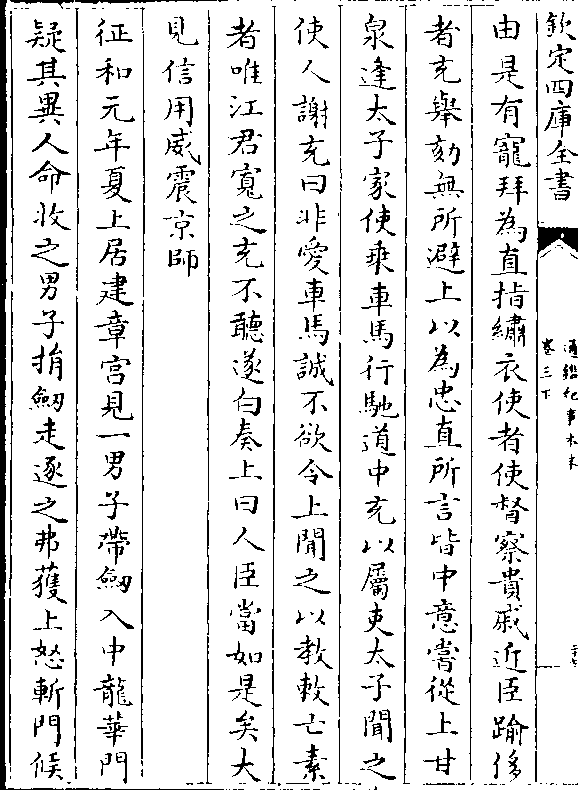 欽定四庫全書
通鑑紀事本末
卷三下
由是有寵拜為直指繡衣使者使督察貴戚近臣踰侈
者充舉劾無所避上以為忠直所言皆中意嘗從上甘
泉逢太子家使乗車馬行馳道中充以屬吏太子聞之
使人謝充曰非愛車馬誠不欲令上聞之以教敕亡素
者唯江君寛之充不聽遂白奏上曰人臣當如是矣大
見信用威震京師
征和元年夏上居建章宫見一男子帶劒入中龍華門
疑其異人命收之男子捐劒走逐之弗獲上怒斬門候